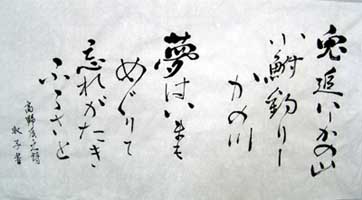 兎追いしかの山
小鮒釣りし
かの川
夢はいまも
めぐりて
忘れがたき
ふるさと
高野辰之詩